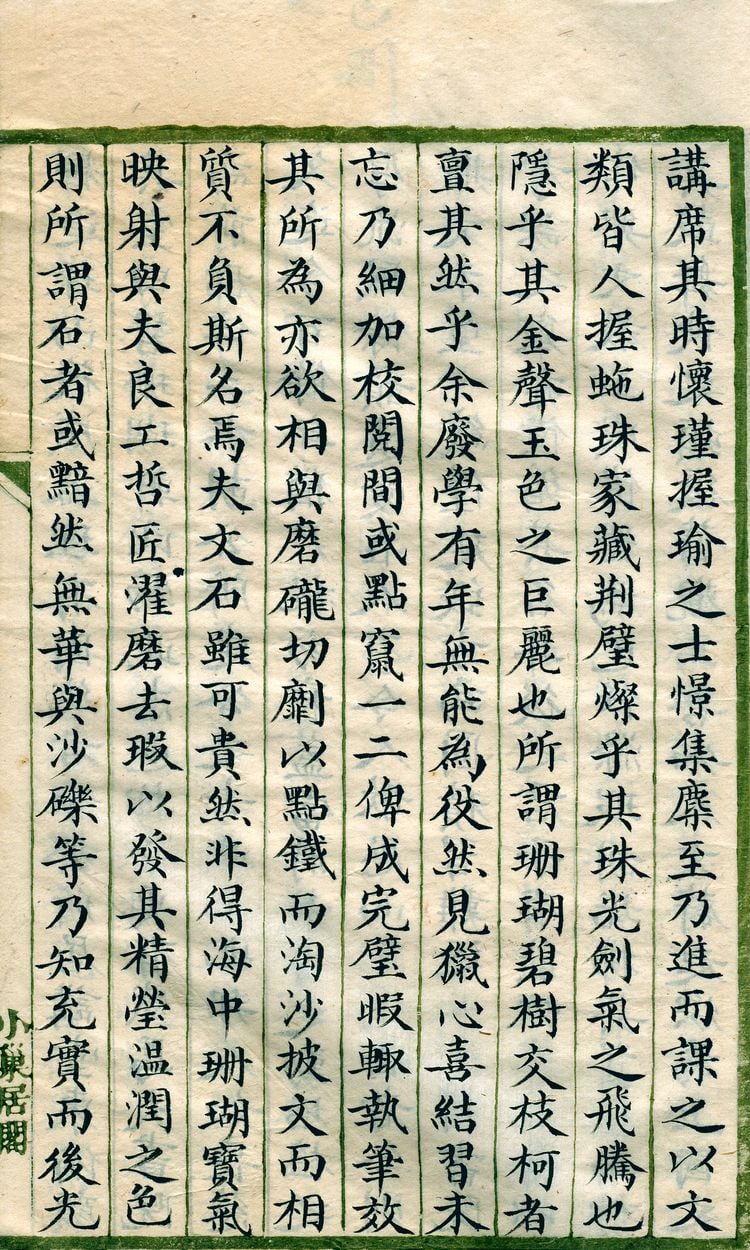 講席其時懷瑾握瑜之士憬集麇至乃進而課之以文
類皆人握虵珠家藏荆璧燦乎其珠光劍氣之飛騰也
隱乎其金聲玉色之巨麗也所謂珊瑚碧樹交枝柯者
亶其然乎余廢學有年無能為役然見獵心喜結習未
忘乃細加校閱間或點竄一二俾成完璧暇輙執筆效
其所為亦欲相與磨礲切劘以點鐵而淘沙披文而相
質不負斯名焉夫文石雖可貴然非得海中珊瑚寶氣
映射與夫良工哲匠濯磨去瑕以發其精瑩温潤之色
則所謂石者或黯然無華與沙礫等乃知充實而後光
小巢居閣